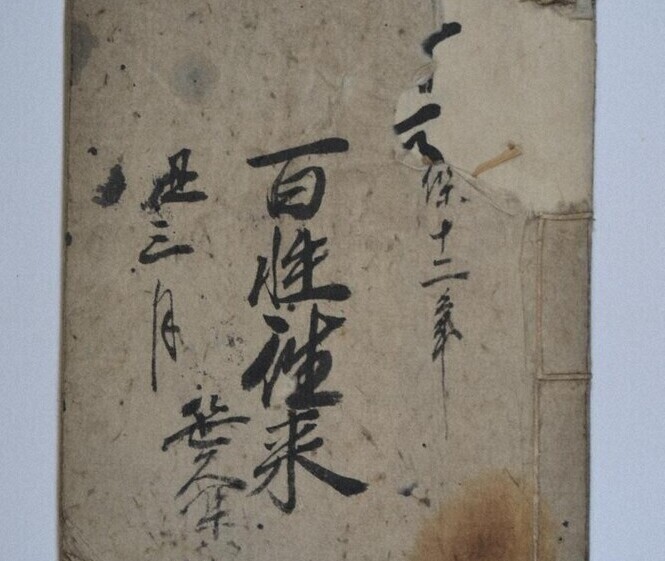 天保十二年
百性徃来
丑三月